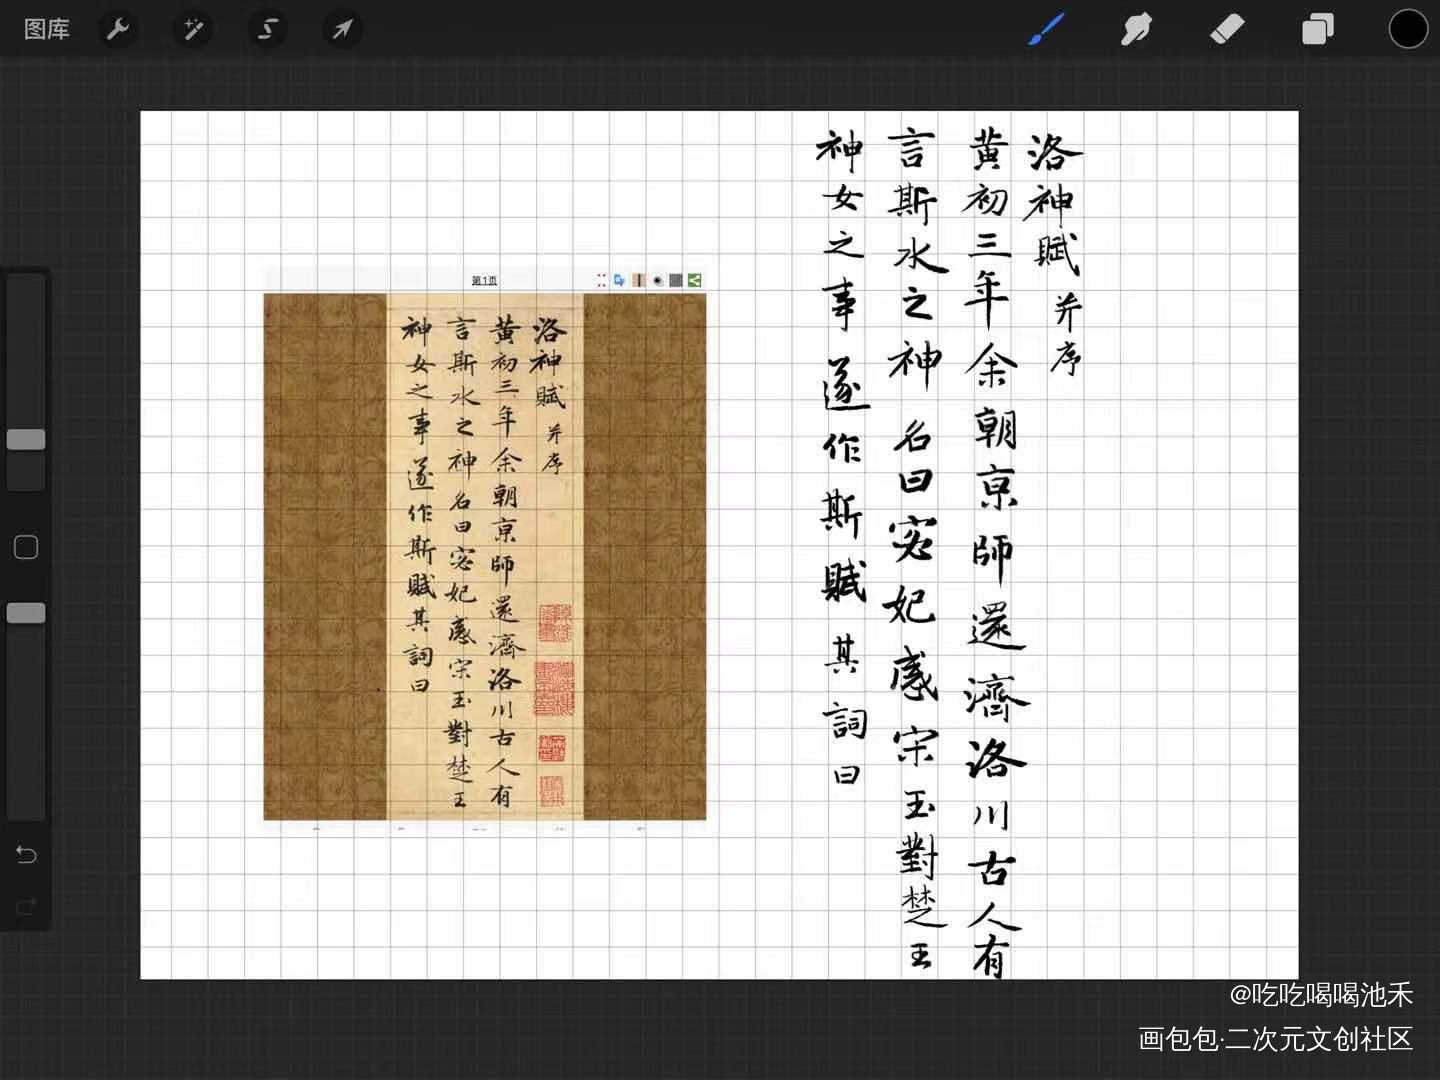 图库
第1页
洛神賦 并序
黄初三年余朝京師還濟洛川古人有
言斯水之神名曰宓妃感宋玉對楚王
神女之事遂作斯賦其詞曰
洛神賦 并序
黄初三年余朝京師還濟洛川古人有
言斯水之神名曰宓妃感宋玉對楚王
神女之事遂作斯賦其詞曰
@吃吃喝喝池禾
画包包·二次元文创社区